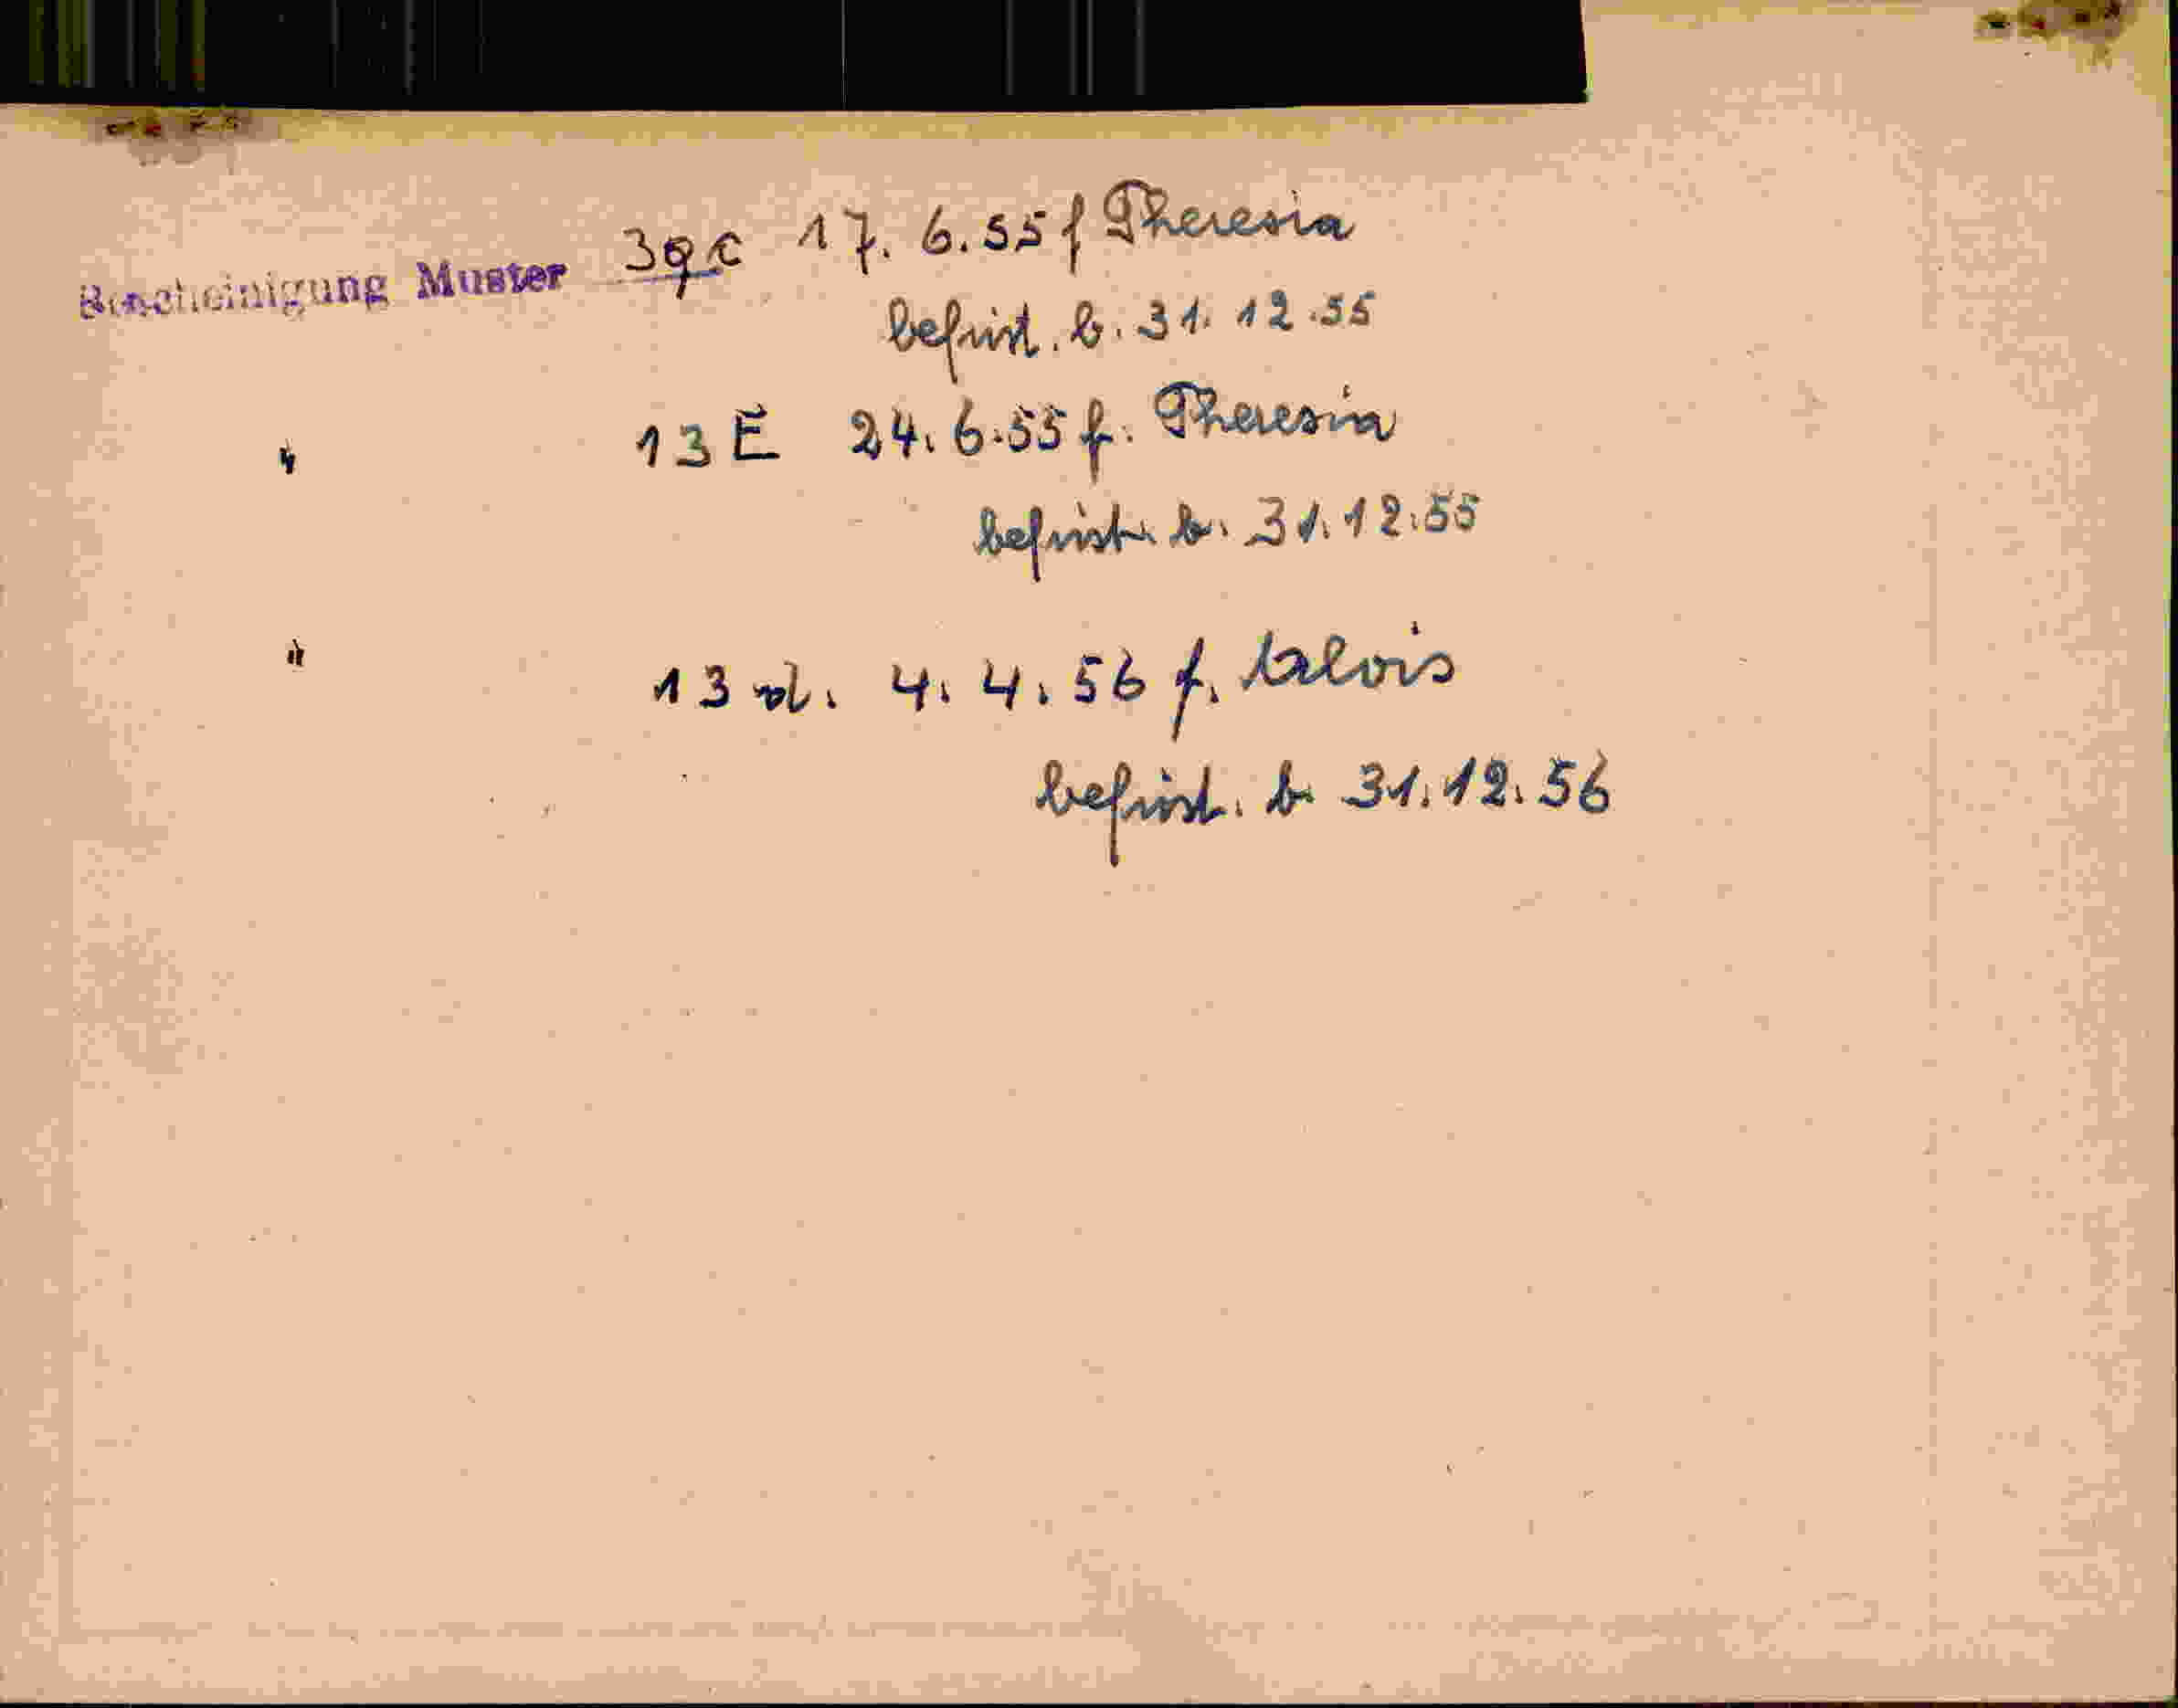 Bescheinigung Muster 39c 17. 6. 55 f Theresia
befrist. b. 31. 12. 55
" 13 E 24. 6. 55 f. Theresia
befrist. b. 31. 12. 55
" 13 d. 4. 4. 56 f. Alois
befrist. b. 31. 12. 56